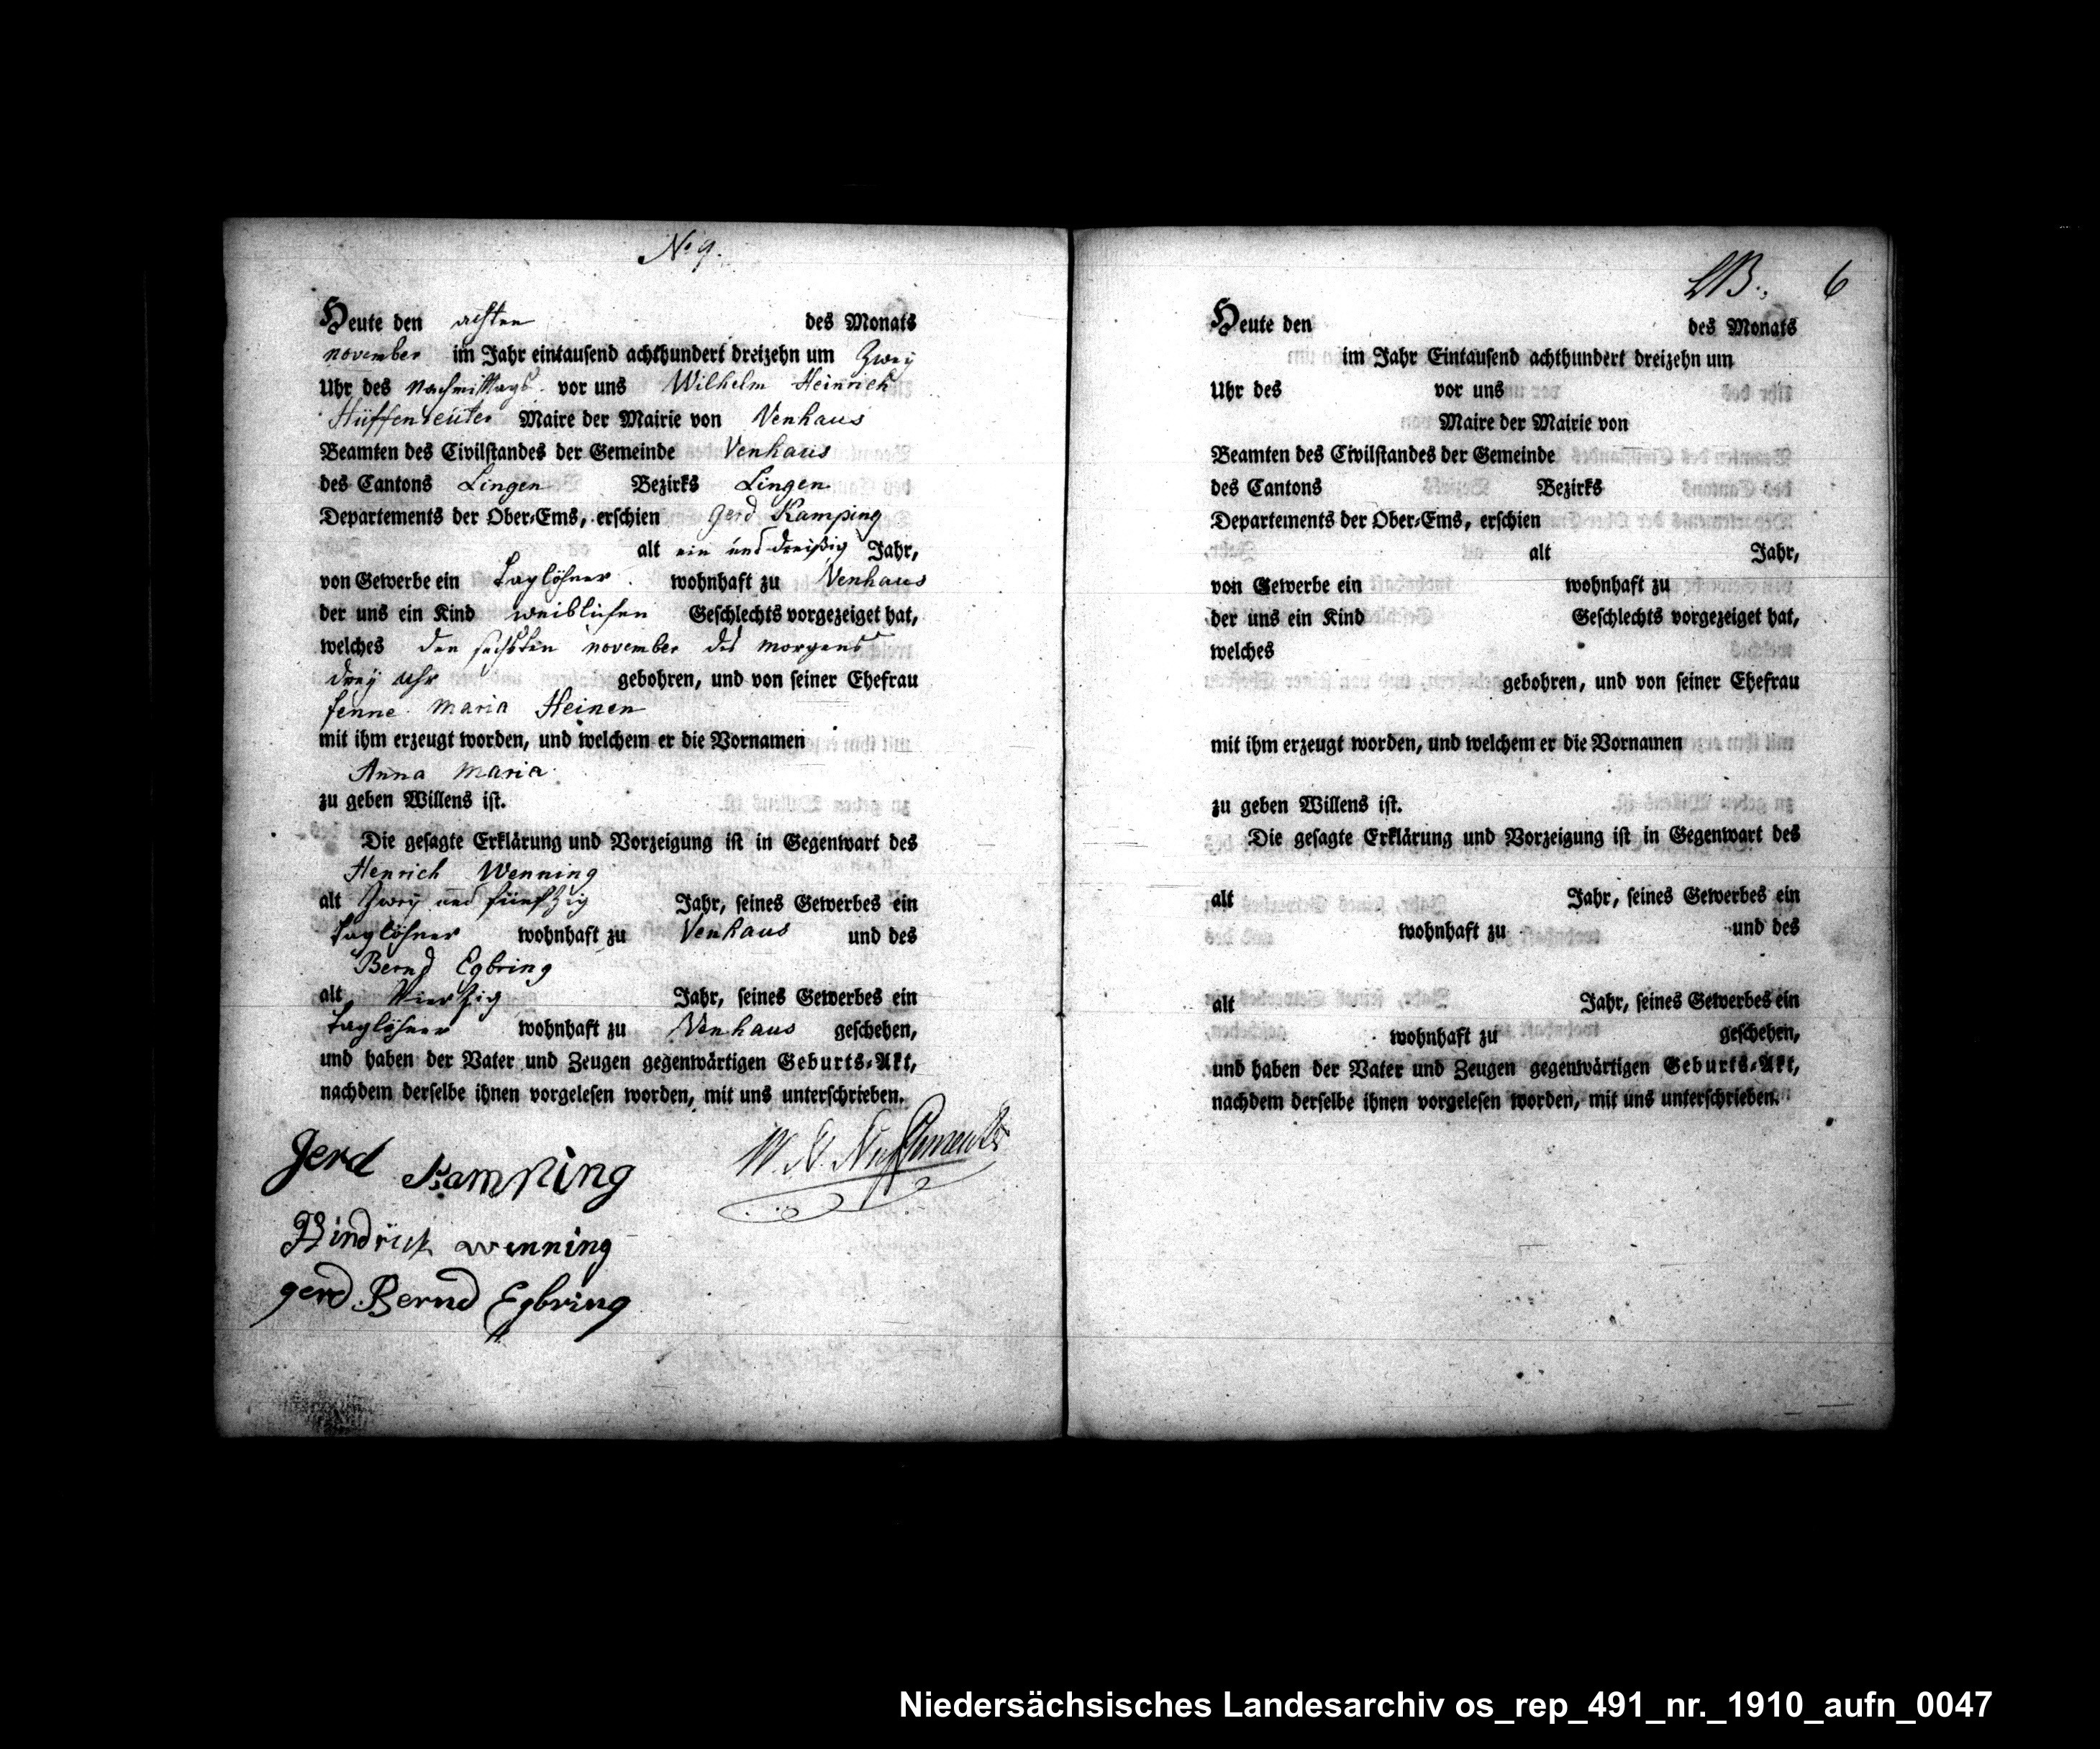 No 9.
Heute den achten des Monats
november im Jahr eintausend achthundert dreizehn um Zwey
Uhr des Nachmittags vor uns Wilhelm Heinrich
Maire der Mairie von Venhaus
Beamten des Civilstandes der Gemeinde Venhaus
des Cantons Lingen Bezirks Lingen
Departements der Ober-Ems, erschien Gerd Kamping
alt ein und dreißig Jahr,
von Gewerbe ein Taglöhner wohnhaft zu Venhaus
der uns ein Kind weiblichen Geschlechts vorgezeiget hat,
welches den sechsten november des morgens
drey Uhr gebohren, und von seiner Ehefrau
fenne Maria Heinen
mit ihm erzeugt worden, und welchem er die Vornamen
Anna Maria
zu geben Willens ist.
Die gesagte Erklärung und Vorzeigung ist in Gegenwart des
Henrich Wenning
alt Zwey und fünfzig Jahr, seines Gewerbes ein
Taglöhner wohnhaft zu Venhaus und des
Bernd Egbring
alt Vierzig Jahr, seines Gewerbes ein
Taglöhner wohnhaft zu Venhaus geschehen,
und haben der Vater und Zeugen gegenwärtigen Geburts-Akt,
nachdem derselbe ihnen vorgelesen worden, mit uns unterschrieben.
Gerd Kamping
Hindrick wenning
gerd Bernd Egbring
6
Heute den des Monats
im Jahr Eintausend achthundert dreizehn um
Uhr des vor uns
Maire der Mairie von
Beamten des Civilstandes der Gemeinde
des Cantons Bezirks
Departements der Ober-Ems, erschien
alt Jahr,
von Gewerbe ein wohnhaft zu
der uns ein Kind Geschlechts vorgezeiget hat,
welches
gebohren, und von seiner Ehefrau
mit ihm erzeugt worden, und welchem er die Vornamen
zu geben Willens ist.
Die gesagte Erklärung und Vorzeigung ist in Gegenwart des
alt Jahr, seines Gewerbes ein
wohnhaft zu und des
alt Jahr, seines Gewerbes ein
wohnhaft zu geschehen,
und haben der Vater und Zeugen gegenwärtigen Geburts-Akt,
nachdem derselbe ihnen vorgelesen worden, mit uns unterschrieben.
Niedersächsisches Landesarchiv os_rep_491_nr._1910_aufn_0047